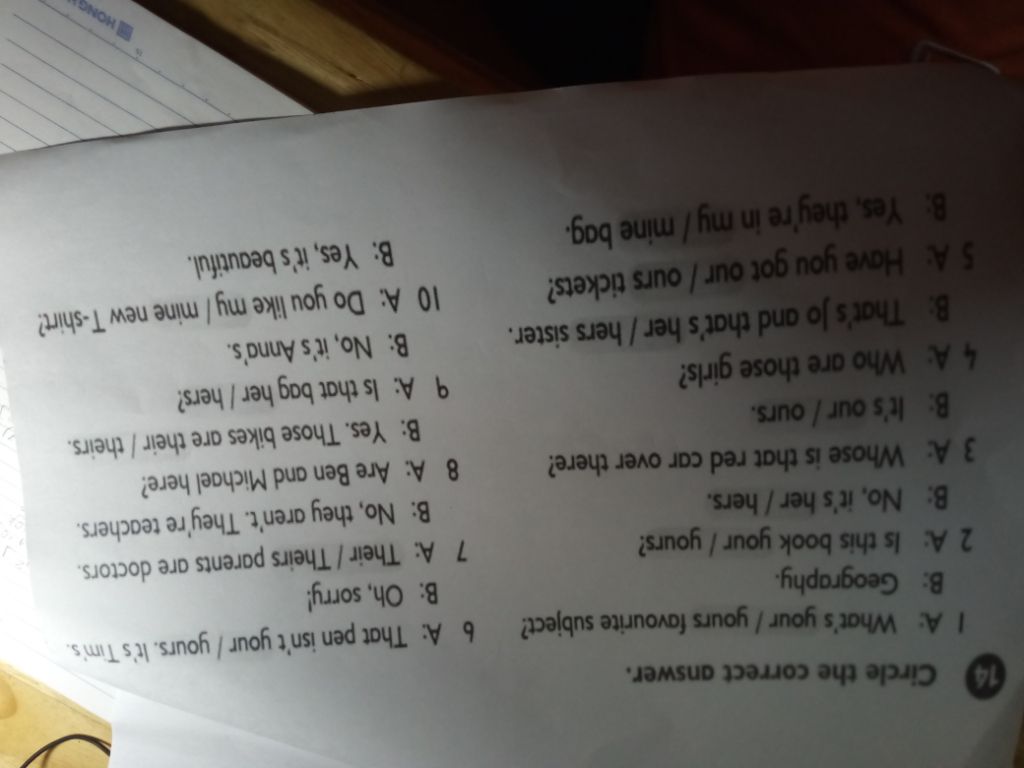 14 Circle the correct answer.
1 A: What's your / yours favourite subject?
B: Geography.
2 A: Is this book your / yours?
B: No, it's her / hers.
3 A: Whose is that red car over there?
B: It's our / ours.
4 A: Who are those girls?
B: That's Jo and that's her / hers sister.
5 A: Have you got our / ours tickets?
B: Yes, they're in my / mine bag.
6 A: That pen isn't your / yours. It's Tim's.
B: Oh, sorry!
7 A: Their / Theirs parents are doctors.
B: No, they aren't. They're teachers.
8 A: Are Ben and Michael here?
B: Yes. Those bikes are their / theirs.
9 A: Is that bag her / hers?
B: No, it's Anna's.
10 A: Do you like my / mine new T-shirt?
B: Yes, it's beautiful.